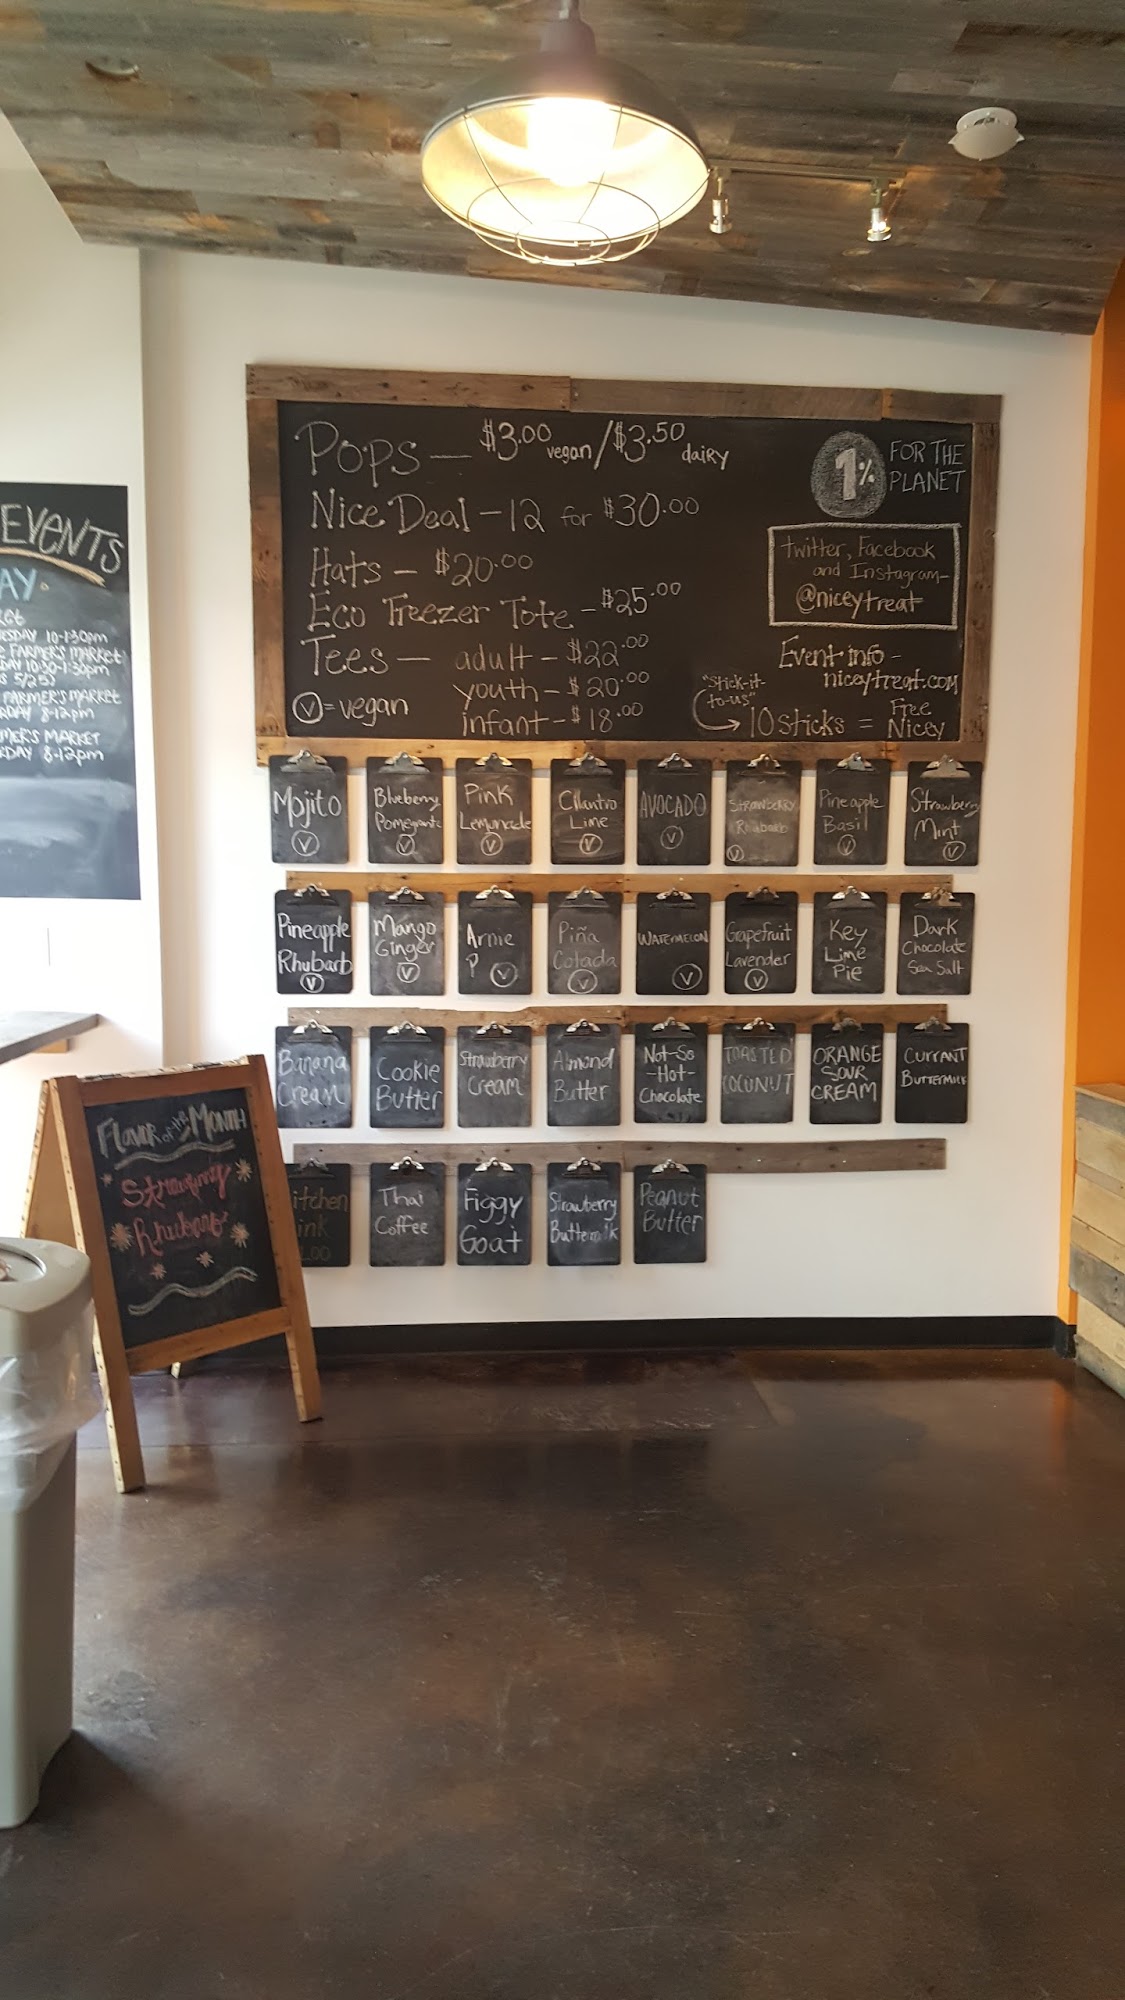 EVENTS
AY
10-1:30pm
FARMER'S MARKET
10:30-1:30pm
5/25)
FARMER'S MARKET
8-12pm
MER'S MARKET
8-12pm
POPS — $3.00 vegan / $3.50 dairy
Nice Deal - 12 for $30.00
Hats - $20.00
Eco Freezer Tote - $25.00
Tees — adult - $22.00
youth - $20.00
infant - $18.00
V = vegan
1% FOR THE
PLANET
Twitter, Facebook
and Instagram-
@niceytreat
Event info -
niceytreat.com
"Stick-it-
to-us"
10 sticks = Free
Nicey
Mojito
V
Blueberry
Pomegranate
V
Pink
Lemonade
V
Cilantro
Lime
V
AVOCADO
V
STRAWBERRY
Rhubarb
V
Pineapple
Basil
V
Strawberry
Mint
V
Pineapple
Rhubarb
V
Mango
Ginger
V
Arnie
P
V
Piña
Colada
V
WATERMELON
V
Grapefruit
Lavender
V
Key
Lime
Pie
Dark
Chocolate
Sea Salt
Banana
Cream
Cookie
Butter
Strawberry
Cream
Almond
Butter
Not-So
-Hot-
Chocolate
TOASTED
COCONUT
ORANGE
SOUR
CREAM
CURRANT
BUTTERMILK
itchen
ink
.00
Thai
Coffee
Figgy
Goat
Strawberry
Buttermilk
Peanut
Butter
FLAVOR of the MONTH
Strawberry
Rhubarb